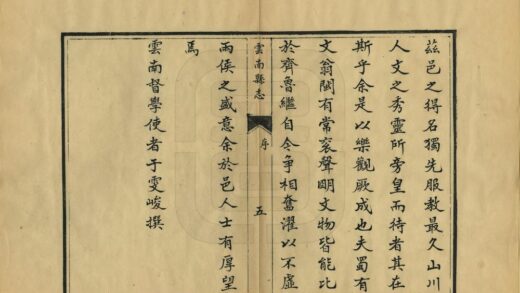 茲邑之得名獨先服教最久山川
人文之秀靈所旁皇而待者其在
斯乎余是以樂觀厥成也夫蜀有
文翁閩有常袞聲明文物皆能比
雲南縣志
序
五
於齊魯繼自今爭相奮濯以不虛
兩侯之盛意余於邑人士有厚望
焉
雲南督學使者于雯峻撰